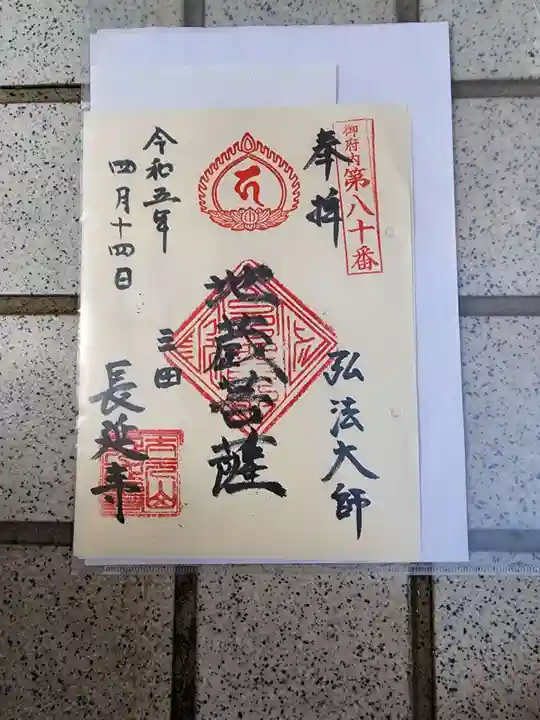 御府内
第八十番
奉拝
弘法大師
地蔵菩薩
三田
長延寺
令和五年
四月十四日